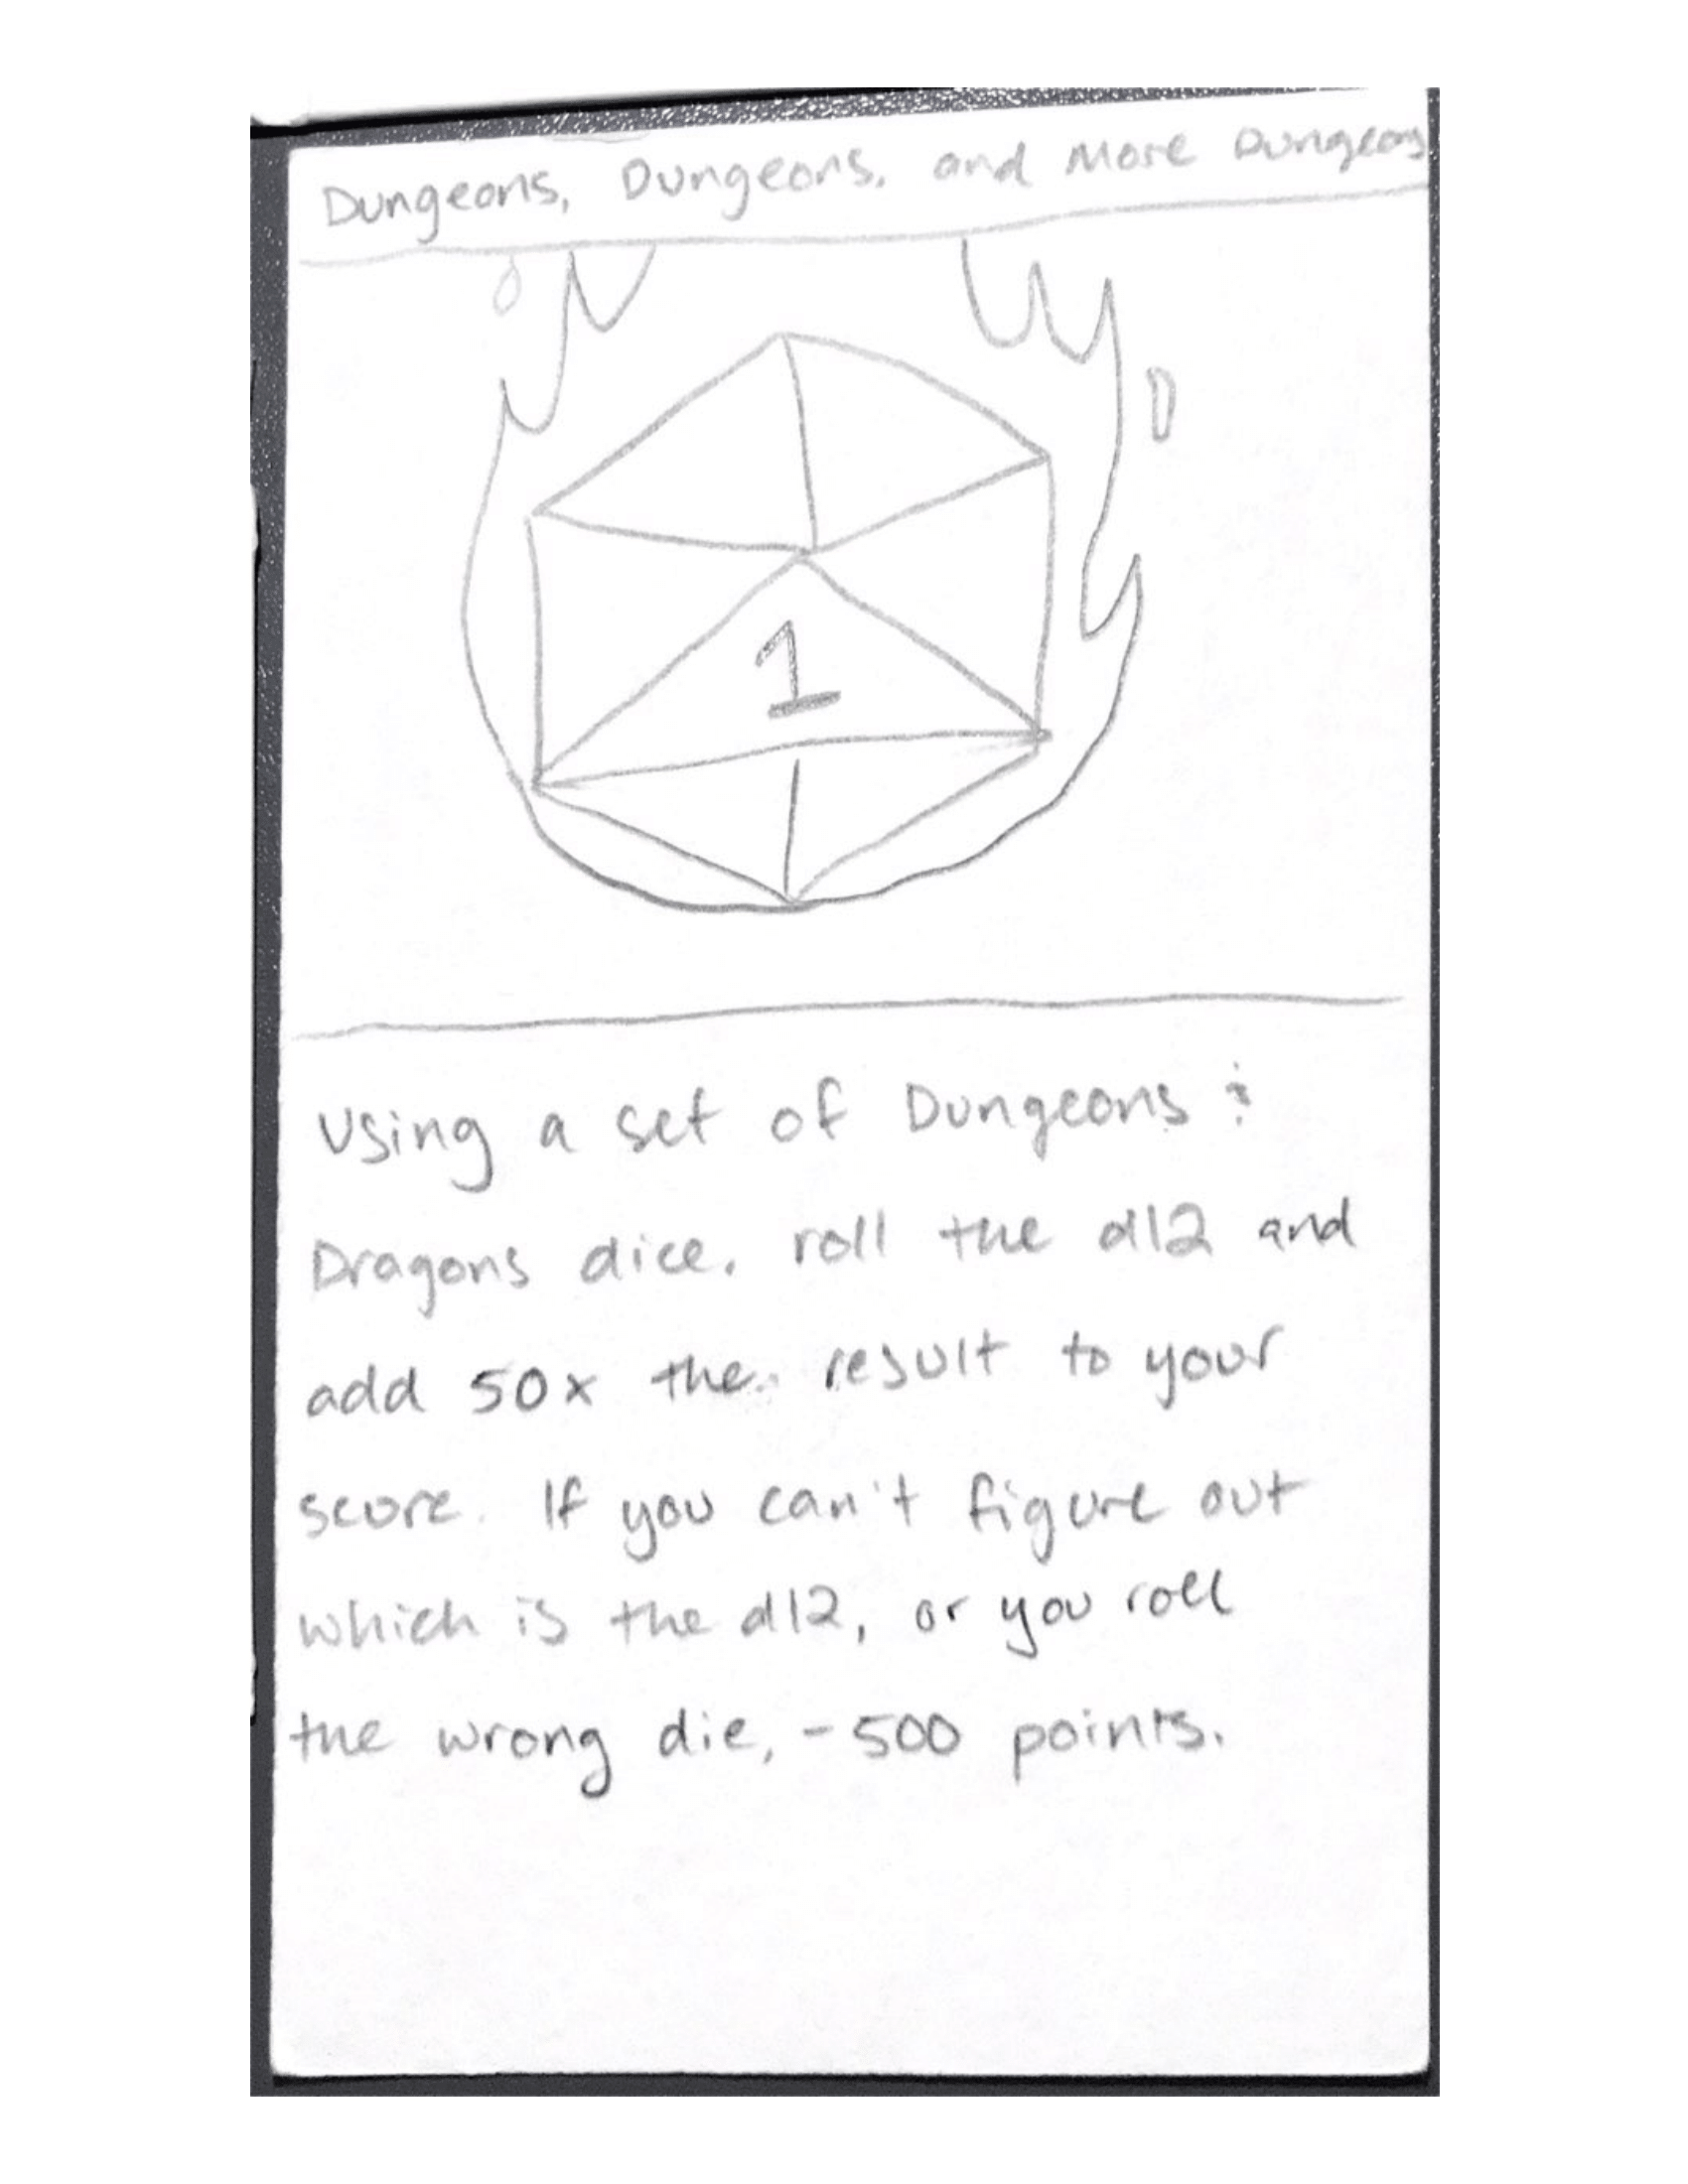 Dungeons, Dungeons, and More Dungeons
1
Using a set of Dungeons &
Dragons dice, roll the d12 and
add 50x the result to your
score. If you can't figure out
which is the d12, or you roll
the wrong die, -500 points.